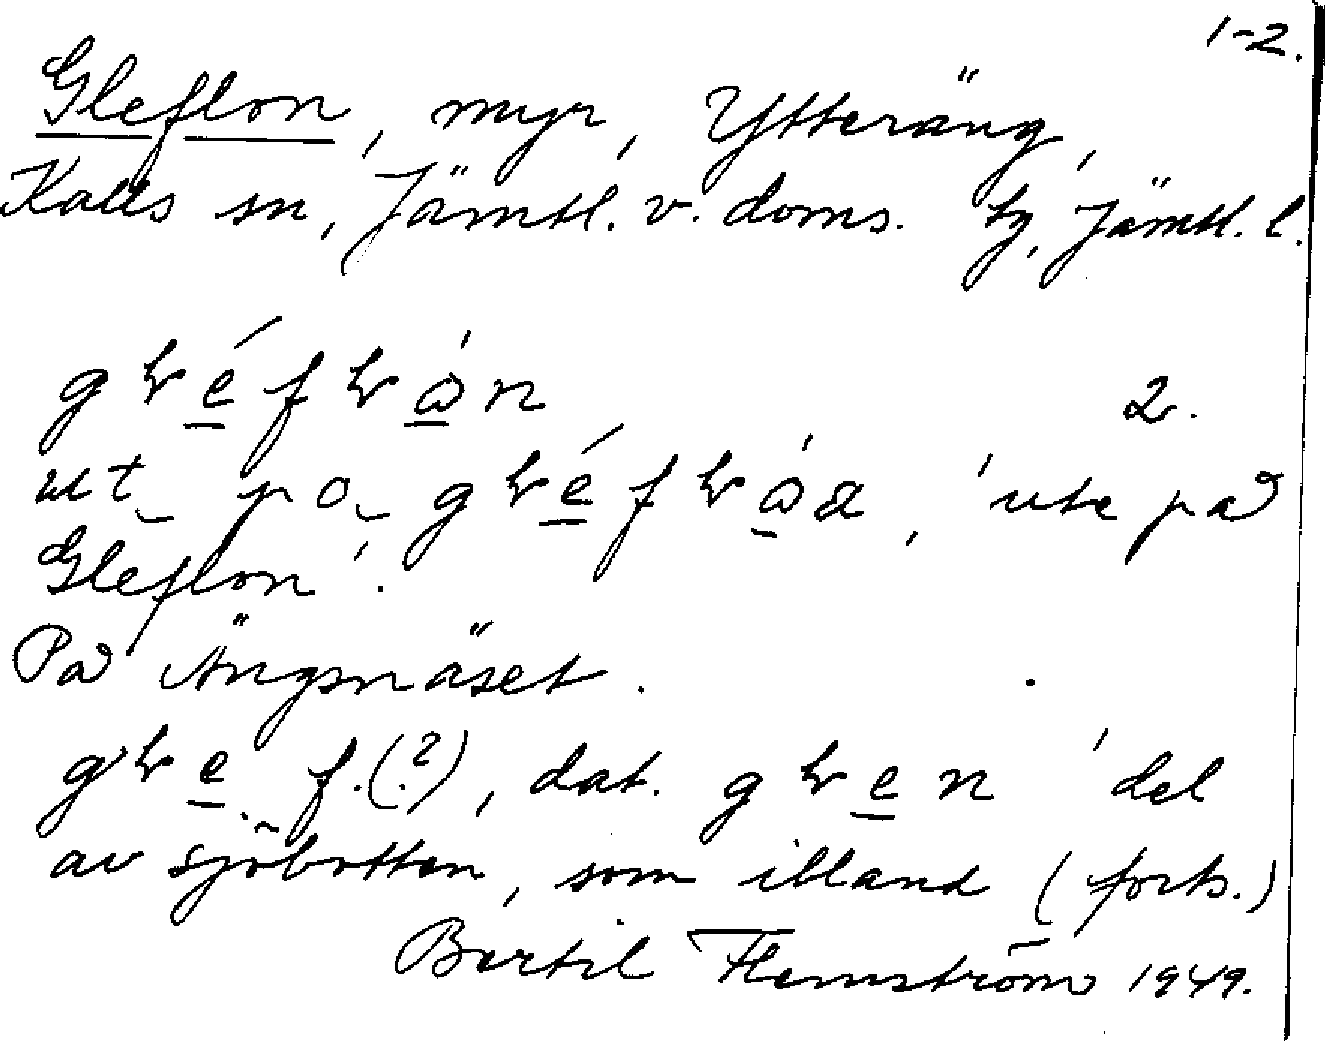 1-2.
Gleflon, myr, Ytteräng,
Kalls sn, Jämtl. v. doms. tg, Jämtl. l.
2.
'ute på
Gleflon'.
På Ängsnäset.
f.(?), dat. 'del
av sjöbotten, som ibland (forts.)
Bertil Flemström 1949.